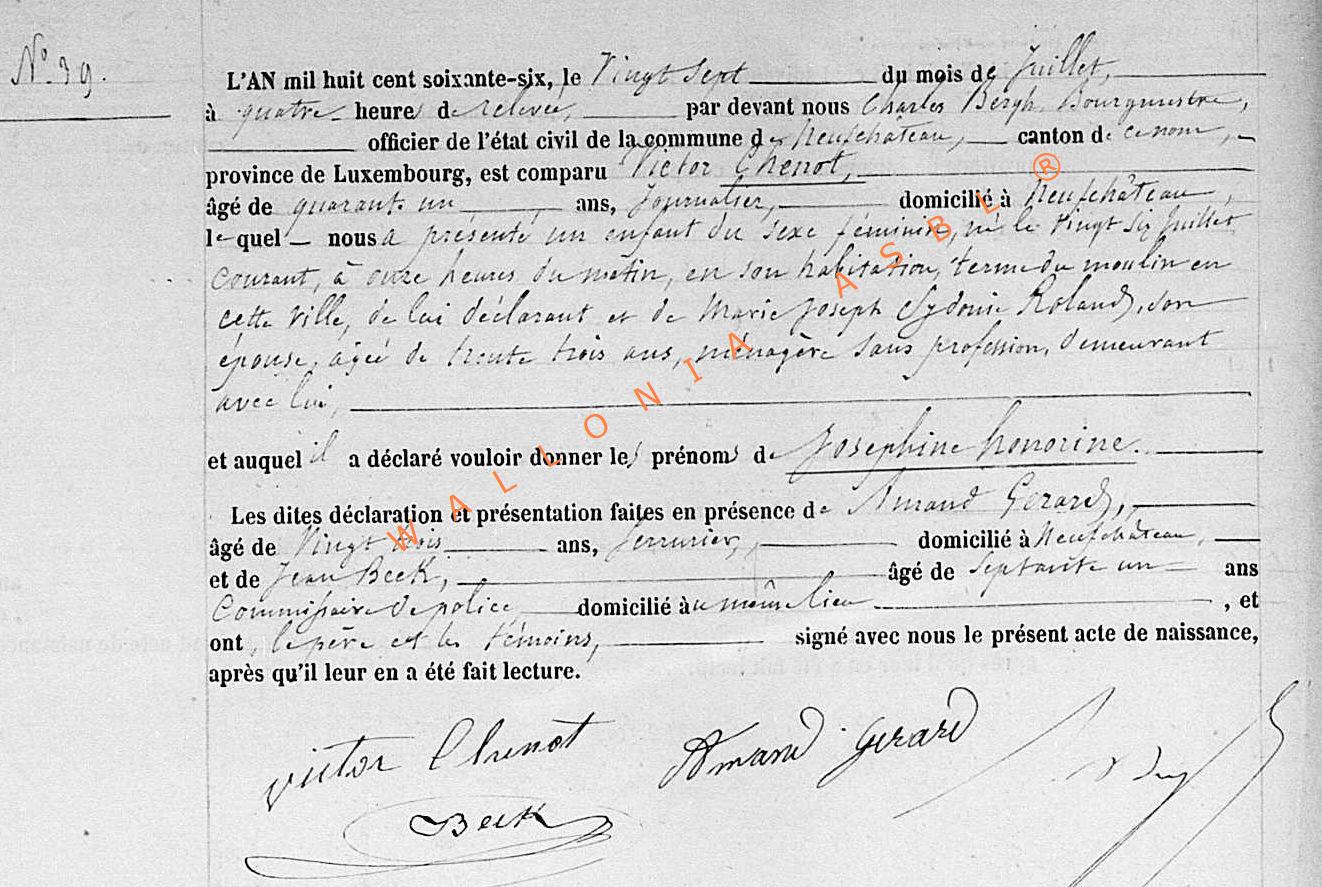 N° 39.
L'AN mil huit cent soixante-six, le Vingt Sept du mois de Juillet,
à quatre heures de relevée, par devant nous Charles Bergh, Bourgmestre,
officier de l'état civil de la commune de Neufchâteau, canton de ce nom,
province de Luxembourg, est comparu Victor Chenot,
âgé de quarante un ans, Journalier, domicilié à Neufchâteau,
lequel nous a présenté un enfant du sexe féminin, né le Vingt Six Juillet
courant, à onze heures du matin, en son habitation, terme du moulin en
cette Ville, de lui déclarant et de Marie Joseph Sydonie Roland, son
épouse, âgée de trente trois ans, ménagère sans profession, demeurant
avec lui,
et auquel il a déclaré vouloir donner les prénoms de Josephine honorine.
Les dites déclaration et présentation faites en présence de Amand Gerard,
âgé de Vingt trois ans, Serrurier, domicilié à Neufchâteau,
et de Jean Beck, âgé de Septante un ans
Commissaire de police domicilié au même lieu , et
ont, le père et les témoins, signé avec nous le présent acte de naissance,
après qu'il leur en a été fait lecture.
Victor Chenot
Amand Gerard
Beck
WALLONIA ASBL ®